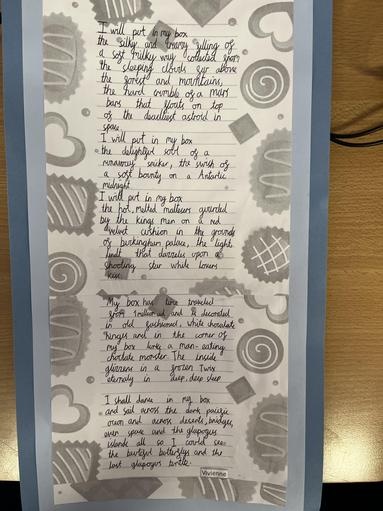 I will put in my box
the silky and creamy filling of
a soft milky way collected from
the sleeping clouds far above
the forest and mountains,
the hard crumble of a mars
bars that floats on top
of the deadliest astroid in
space.
I will put in my box
the delightful sort of a
runaway snicker, the swish of
a soft bounty on a Antartic
midnight.
I will put in my box
the hot, melted malteasers guarded
by the kings men on a red
velvet cushion in the grounds
of buckingham palace, the light
lindt that dazzels upon a
shooting star while lovers
kiss.
My box has time traveled
from 1 million ad, and is decorated
in old fashioned, white chocolate
hinges and in the corner of
my box lurks a man-eating
choclate monster. The inside
glizzens in a frozen Twix
eternaly in deep, deep sleep.
I shall dance in my box
and sail across the dark pacific
ocean and across deserts, bridges,
over space and the glapogus
islands all so I could see
the butiful butterflys and the
last glapogus turtle.
Vivienne